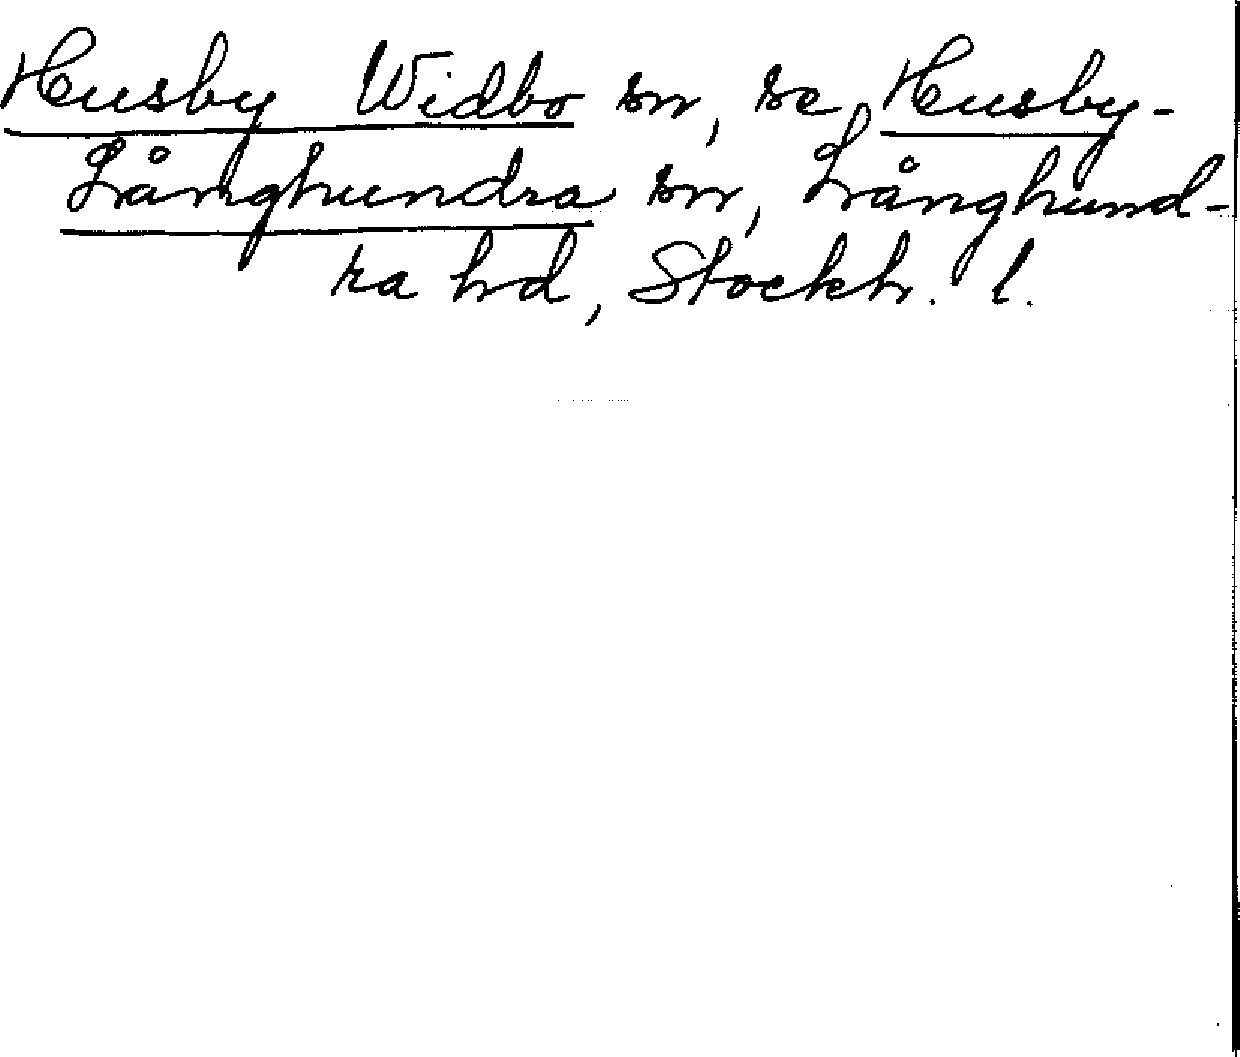 Husby Widbo sn, se Husby-
Långhundra sn, Långhund-
ra hd, Stockh. l.